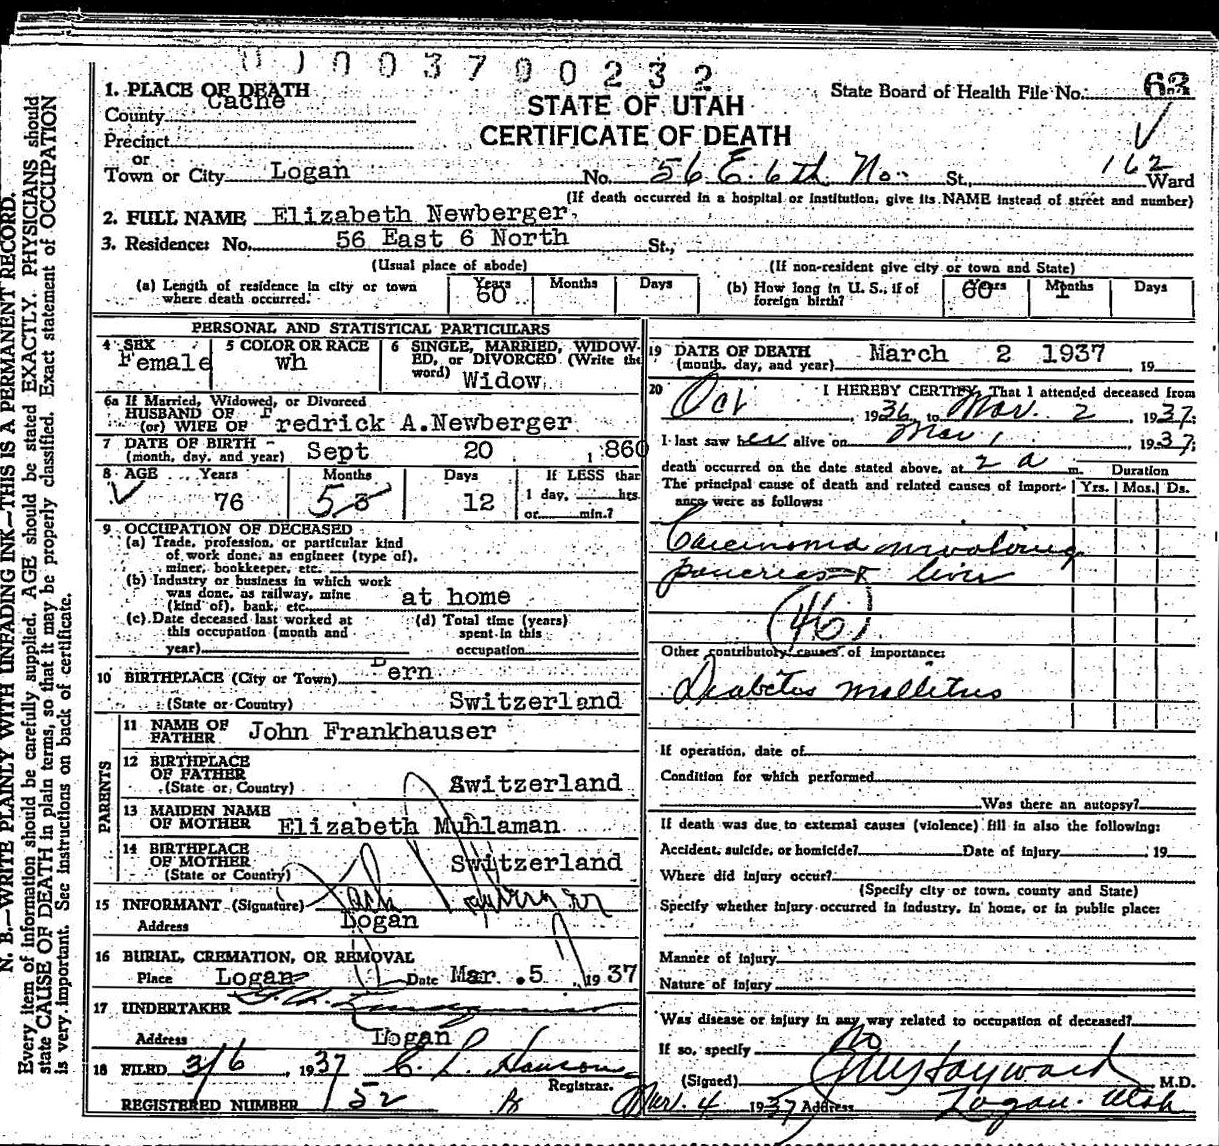 0 0 0 3 7 0 0 2 3 2
1. PLACE OF DEATH
County Cache
STATE OF UTAH
CERTIFICATE OF DEATH
State Board of Health File No. 63
Precinct
or
Town or City Logan No. 56 E. 6th No. St., 162 Ward
(If death occurred in a hospital or institution, give its NAME instead of street and number)
2. FULL NAME Elizabeth Newberger
3. Residence: No. 56 East 6 North St.,
(Usual place of abode) (If non-resident give city or town and State)
(a) Length of residence in city or town where death occurred. Years 60 Months Days
(b) How long in U. S., if of foreign birth? Years 60 Months 1 Days
PERSONAL AND STATISTICAL PARTICULARS
4 SEX Female
5 COLOR OR RACE wh
6 SINGLE, MARRIED, WIDOWED, or DIVORCED (Write the word) Widow
6a If Married, Widowed, or Divorced
HUSBAND OF
(or) WIFE OF Fredrick A.Newberger
7 DATE OF BIRTH
(month, day, and year) Sept 20 1860
8 AGE Years 76 Months 5 Days 12
If LESS than
1 day, hrs.
or min.?
9 OCCUPATION OF DECEASED
(a) Trade, profession, or particular kind
of work done, as engineer (type of),
miner, bookkeeper, etc.
(b) Industry or business in which work
was done, as railway, mine
(kind of), bank, etc. at home
(c) Date deceased last worked at
this occupation (month and
year)
(d) Total time (years)
spent in this
occupation
10 BIRTHPLACE (City or Town) Bern
(State or Country) Switzerland
PARENTS
11 NAME OF
FATHER John Frankhauser
12 BIRTHPLACE
OF FATHER
(State or Country) Switzerland
13 MAIDEN NAME
OF MOTHER Elizabeth Muhlaman
14 BIRTHPLACE
OF MOTHER
(State or Country) Switzerland
15 INFORMANT (Signature)
Address Logan
16 BURIAL, CREMATION, OR REMOVAL
Place Logan Date Mar. 5, 1937
17 UNDERTAKER
Address Logan
18 FILED 3/6, 1937 C. L. Hansons
Registrar.
REGISTERED NUMBER 52
19 DATE OF DEATH
(month, day, and year) March 2 1937 19
20 I HEREBY CERTIFY, That I attended deceased from
Oct, 1936, to Mar. 2 1937:
I last saw her alive on Mar 1, 1937;
death occurred on the date stated above, at 2 a m. Duration
The principal cause of death and related causes of importance were as follows: Yrs. Mos. Ds.
Carcinoma involving
pancreas & liver
(46)
Other contributory causes of importance:
Diabetes mellitus
If operation, date of
Condition for which performed
Was there an autopsy?
If death was due to external causes (violence) fill in also the following:
Accident, suicide, or homicide? Date of injury 19
Where did injury occur?
(Specify city or town, county and State)
Specify whether injury occurred in industry, in home, or in public place:
Manner of injury
Nature of injury
Was disease or injury in any way related to occupation of deceased?
If so, specify No
(Signed) Hayward M.D.
Mar. 4 1937 Address Logan. Utah
N. B.—WRITE PLAINLY WITH UNFADING INK—THIS IS A PERMANENT RECORD.
Every item of information should be carefully supplied. AGE should be stated EXACTLY. PHYSICIANS should
state CAUSE OF DEATH in plain terms, so that it may be properly classified. Exact statement of OCCUPATION
is very important. See instructions on back of certificate.